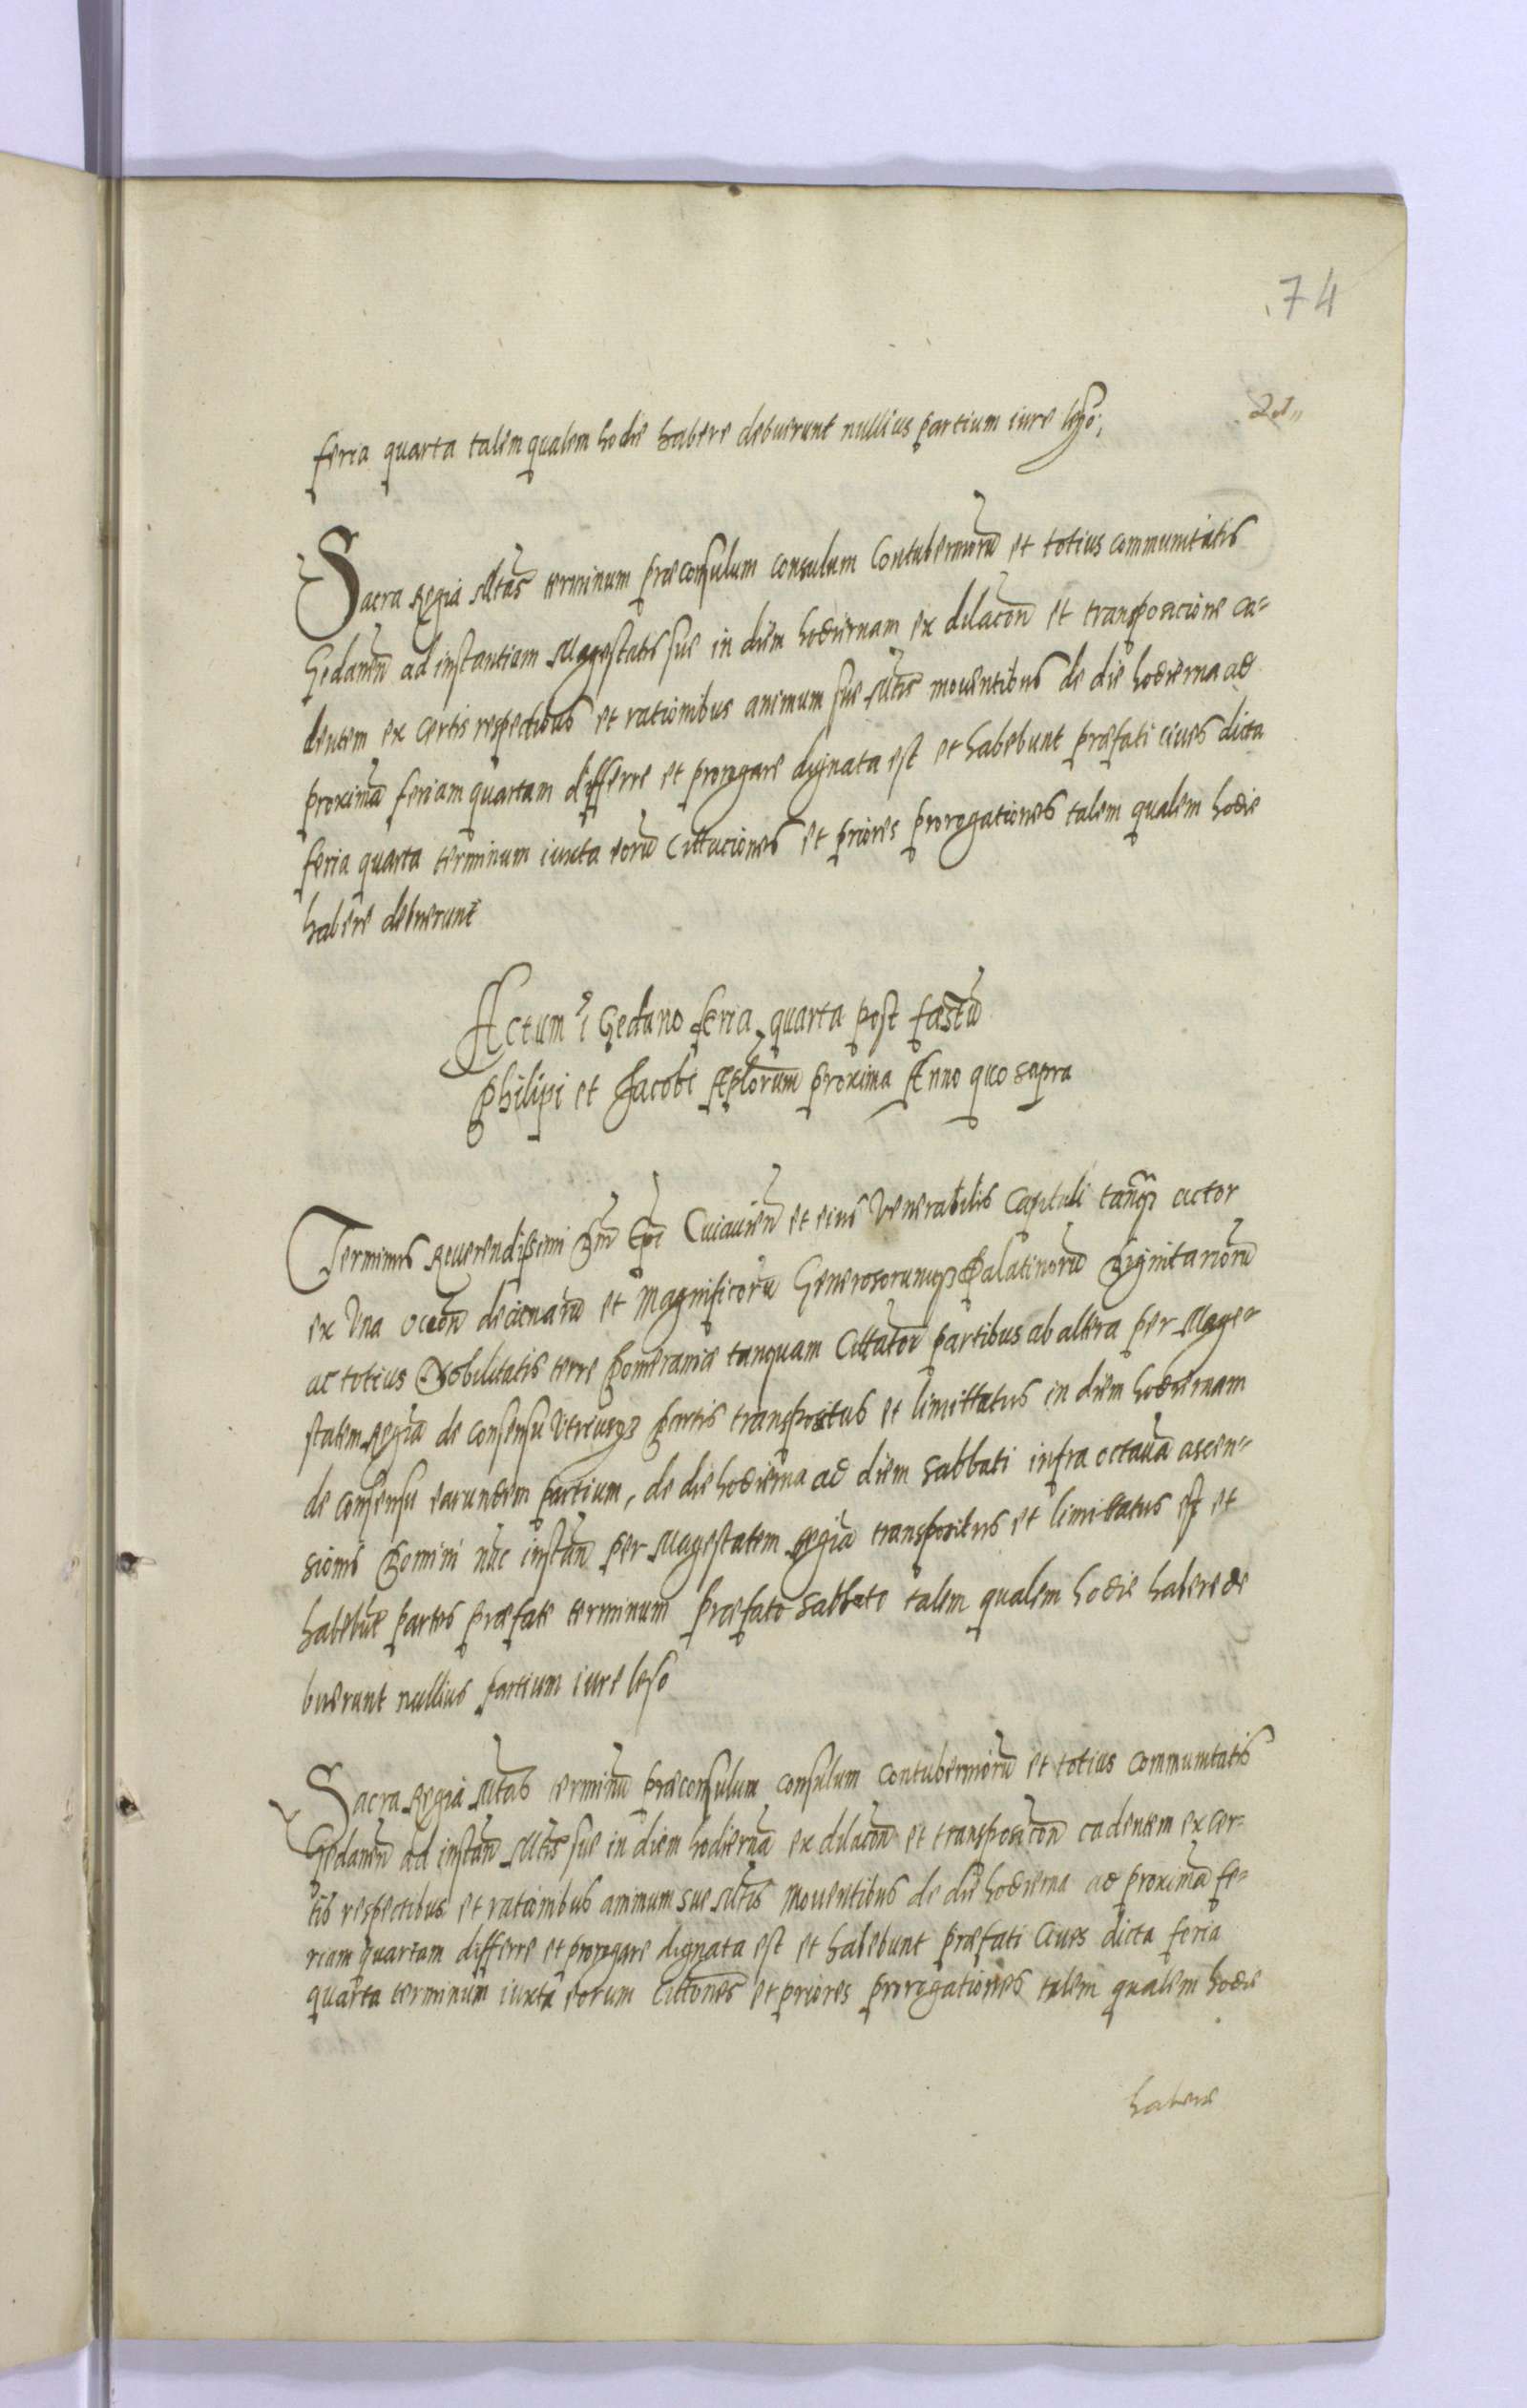 74
21
feria quarta talem qualem hodie habere debuerunt nullius partium iure leso;
Sacra Regia Mtas terminum præconsulum consulum Contuberniorũ et totius communitatis
Gedaneñ ad instantiam Magestatis sue in diem hodiernam ex dilacoñ et transposicione ca-
dentem ex certis respectibus et rationibus animum sue Mtis mouentibus de die hodierna ad
proximã feriam quartam differre et prorogare dignata est et habebunt præfati ciues dicta
feria quarta terminum iuxta eorũ Cittaciones et priores prorogationes talem qualem hodie
habere debuerunt
Actum i Gedano feria quarta post fæstũ
Philipi et Jacobi Aplorum proxima Anno quo supra
Terminus Reuerendissimi Dni Epi Cuiauieñ et eius Venerabilis Capituli tanq̃ actor
ex Vna occoñ decimarũ et Magnificorũ Generosorumqȝ Palatinorũ Dignitariorũ
ac totius Nobilitatis terre Pomeraniæ tanquam Cittator̃ partibus ab altera per Mage-
statem Regiã de consensu Vtriusqȝ Partis transpositus et limittatus in diem hodiernam
de consensu earundem partium, de die hodierna ad diem Sabbati infra octauã ascen-
sionis Domini nũc instañ per Magestatem Regiã transpositus et limittatus est et
habebũt partes præfate terminum præfato Sabbato talem qualem hodie habere de
buerunt nullius partium iure leso
Sacra Regia Mtas terminũ præconsulum consulum contuberniorũ et totius communitatis
Gedaneñ ad instañ Mtis sue in diem hodiernã ex dilacoñ et transposicoñ cadentem ex cer-
tis respectibus et rationibus animum sue Mtis mouentibus de die hodierna ad proximã fe-
riam quartam differre et prorogare dignata est et habebunt præfati Ciues dicta feria
quarta terminum iuxta eorum Cittoñes et priores prorogationes talem qualem hodie
habere